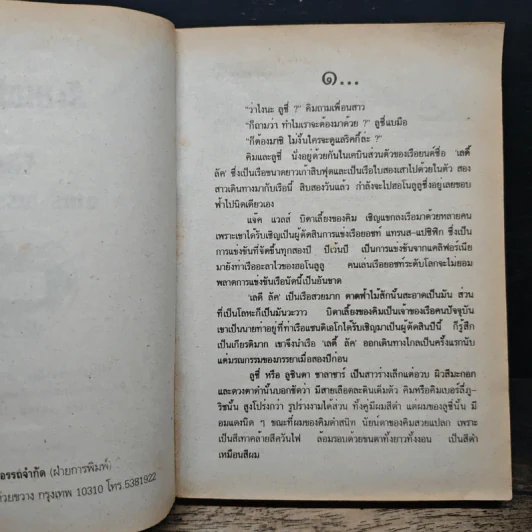 ๑...
"ว่าไงนะ ลูซี่ ?" คิมถามเพื่อนสาว
"ก็ถามว่า ทำไมเราจะต้องมาด้วย ?" ลูซี่แบมือ
"ก็ต้องมาซิ ไม่งั้นใครจะดูแลริคกี้ล่ะ ?"
คิมและลูซี่ นั่งอยู่ด้วยกันในเคบินส่วนตัวของเรือยนต์ชื่อ 'เลดี้
ลัค' ซึ่งเป็นเรือขนาดยาวเก้าสิบฟุตและเป็นเรือใบสองเสาไปด้วยในตัว สอง
สาวเดินทางมากับเรือนี้ สิบสองวันแล้ว กำลังจะไปฮอโนลูลูซึ่งอยู่เลยขอบ
ฟ้าไปนิดเดียวเอง
แจ๊ค แวลส์ บิดาเลี้ยงของคิม เชิญแขกลงเรือมาด้วยหลายคน
เพราะเขาได้รับเชิญเป็นผู้ตัดสินการแข่งเรือยอชท์ แทรนส-แปซิฟิก ซึ่งเป็น
การแข่งขันที่จัดขึ้นทุกสองปี ปีเว้นปี เป็นการแข่งขันจากแคลิฟอร์เนีย
มายังท่าเรืออะลาไวของฮอโนลูลู คนเล่นเรือยอชท์ระดับโลกจะไม่ยอม
พลาดการแข่งขันเรือนัดนี้เป็นอันขาด
'เลดี้ ลัค' เป็นเรือสวยมาก ดาดฟ้าไม้สักนั้นสะอาดเป็นมัน ส่วน
ที่เป็นโลหะก็เป็นมันวะวาว บิดาเลี้ยงของคิมเป็นเจ้าของเรือคนปัจจุบัน
เขาเป็นนายท่าอยู่ที่ท่าเรือแซนดิเอโกได้รับเชิญมาเป็นผู้ตัดสินปีนี้ ก็รู้สึก
เป็นเกียรติมาก เขาจึงนำเรือ 'เลดี้ ลัค' ออกเดินทางไกลเป็นครั้งแรกนับ
แต่มรณกรรมของภรรยาเมื่อสองปีก่อน
ลูซี่ หรือ ลูซินดา ซาลาซาร์ เป็นสาวร่างเล็กแต่อวบ ผิวสีมะกอก
และดวงตาดำนั้นบอกชัดว่า มีสายเลือดละตินเต็มตัว คิมหรือคิมเบอร์ลี่ภู-
ริชนั้น สูงโปร่งกว่า รูปร่างงามได้ส่วน ทั้งคู่มีผมสีดำ แต่ผมของลูซี่นั้น มี
อมแดงนิด ๆ ขณะที่ผมของคิมดำสนิท นัยน์ตาของคิมสวยแปลก เพราะ
เป็นสีเทาคล้ายสีควันไฟ ล้อมรอบด้วยขนตาทั้งยาวทั้งงอน เป็นสีดำ
เหมือนสีผม
อรรถจำกัด (ฝ่ายการพิมพ์)
ห้วยขวาง กรุงเทพ 10310 โทร.5381922